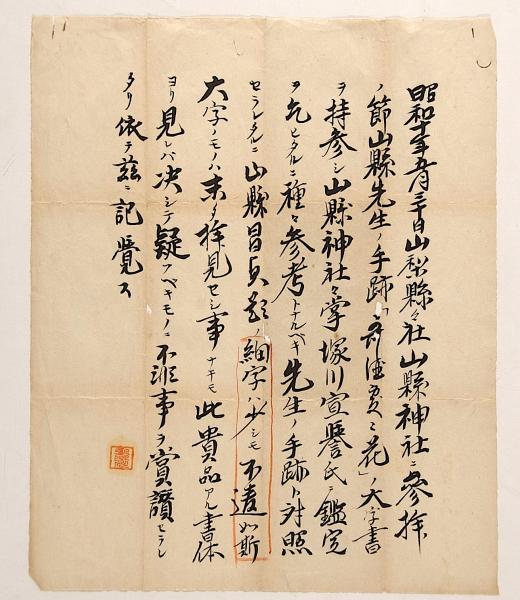 昭和十年五月三十日山梨縣々社山縣神社ニ參拝
ノ節山縣先生ノ手跡「花」ノ大字書
ヲ持参シ山縣神社々掌塚川宣譽氏ニ鑑定
ヲ乞ヒタルニ種々参考トナルベキ先生ノ手跡ト対照
セラレタルニ山縣昌貞ノ細字ハ少シモ不違如斯
大字ノモノハ未タ拝見セシ事ナキモ此貴品アル書体
ヨリ見レバ決シテ疑フベキモノニ不非事ヲ賞讃セラレ
タリ依テ茲ニ記覺ス